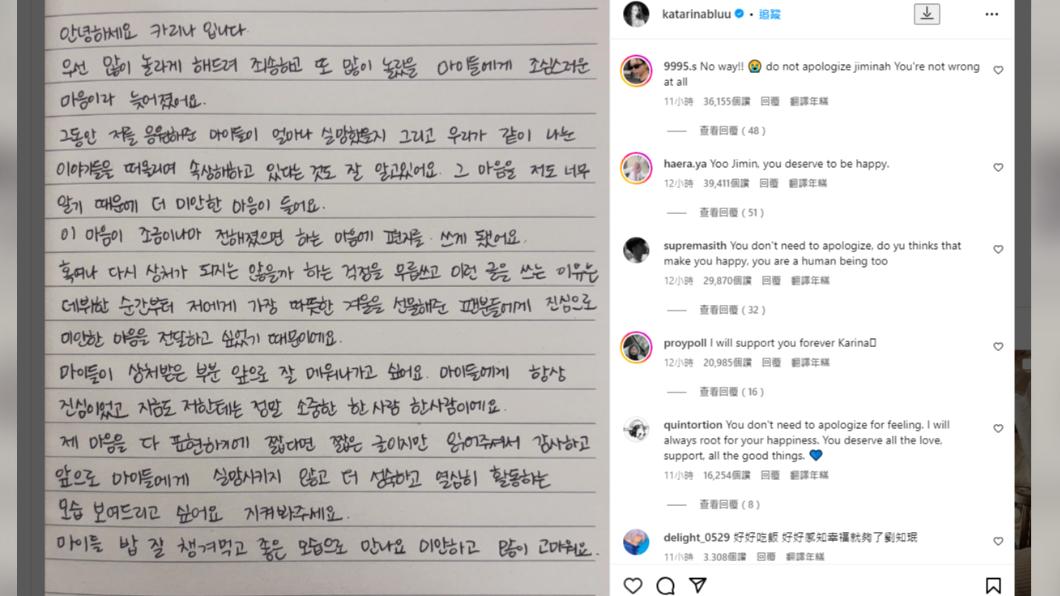 안녕하세요 카리나 입니다
우선 많이 놀라게 해드려 죄송하고 또 많이 놀랐을 마이들에게 조심스러운
마음이라 늦어졌어요.
그동안 저를 응원해준 마이들이 얼마나 실망했을지 그리고 우리가 같이 나눈
이야기들을 떠올리며 속상해하고 있다는 것도 잘 알고있어요. 그 마음을 저도 너무
알기 때문에 더 미안한 마음이 들어요.
이 마음이 조금이나마 전해졌으면 하는 마음에 편지를 쓰게 됐어요.
혹여나 다시 상처가 되지는 않을까 하는 걱정을 무릅쓰고 이런 글을 쓰는 이유는
데뷔한 순간부터 저에게 가장 따뜻한 겨울을 선물해준 팬분들에게 진심으로
미안한 마음을 전달하고 싶었기 때문이에요.
마이들이 상처받은 부분 앞으로 잘 메워나가고 싶어요. 마이들에게 항상
진심이었고 지금도 저한테는 정말 소중한 한 사람 한사람이에요.
제 마음을 다 표현하기에 짧다면 짧은 글이지만 읽어주셔서 감사하고
앞으로 마이들에게 실망시키지 않고 더 성숙하고 열심히 활동하는
모습 보여드리고 싶어요 지켜봐주세요.
마이들 밥 잘 챙겨먹고 좋은 모습으로 만나요 미안하고 많이 고마워요.
katarinabluu • 追蹤
9995.s No way!! 😭 do not apologize jiminah You're not wrong
at all
11小時 36,155個讚 回覆 翻譯年糕
查看回覆 (48)
haera.ya Yoo Jimin, you deserve to be happy.
12小時 39,411個讚 回覆 翻譯年糕
查看回覆 (51)
supremasith You don't need to apologize, do yu thinks that
make you happy, you are a human being too
12小時 29,870個讚 回覆 翻譯年糕
查看回覆 (32)
proypoll I will support you forever Karina
12小時 20,985個讚 回覆 翻譯年糕
查看回覆 (16)
quintortion You don't need to apologize for feeling. I will
always root for your happiness. You deserve all the love,
support, all the good things. 💙
11小時 16,254個讚 回覆 翻譯年糕
查看回覆 (8)
delight_0529 好好吃飯 好好感知幸福就夠了劉知珉
11小時 3,308個讚 回覆 翻譯年糕